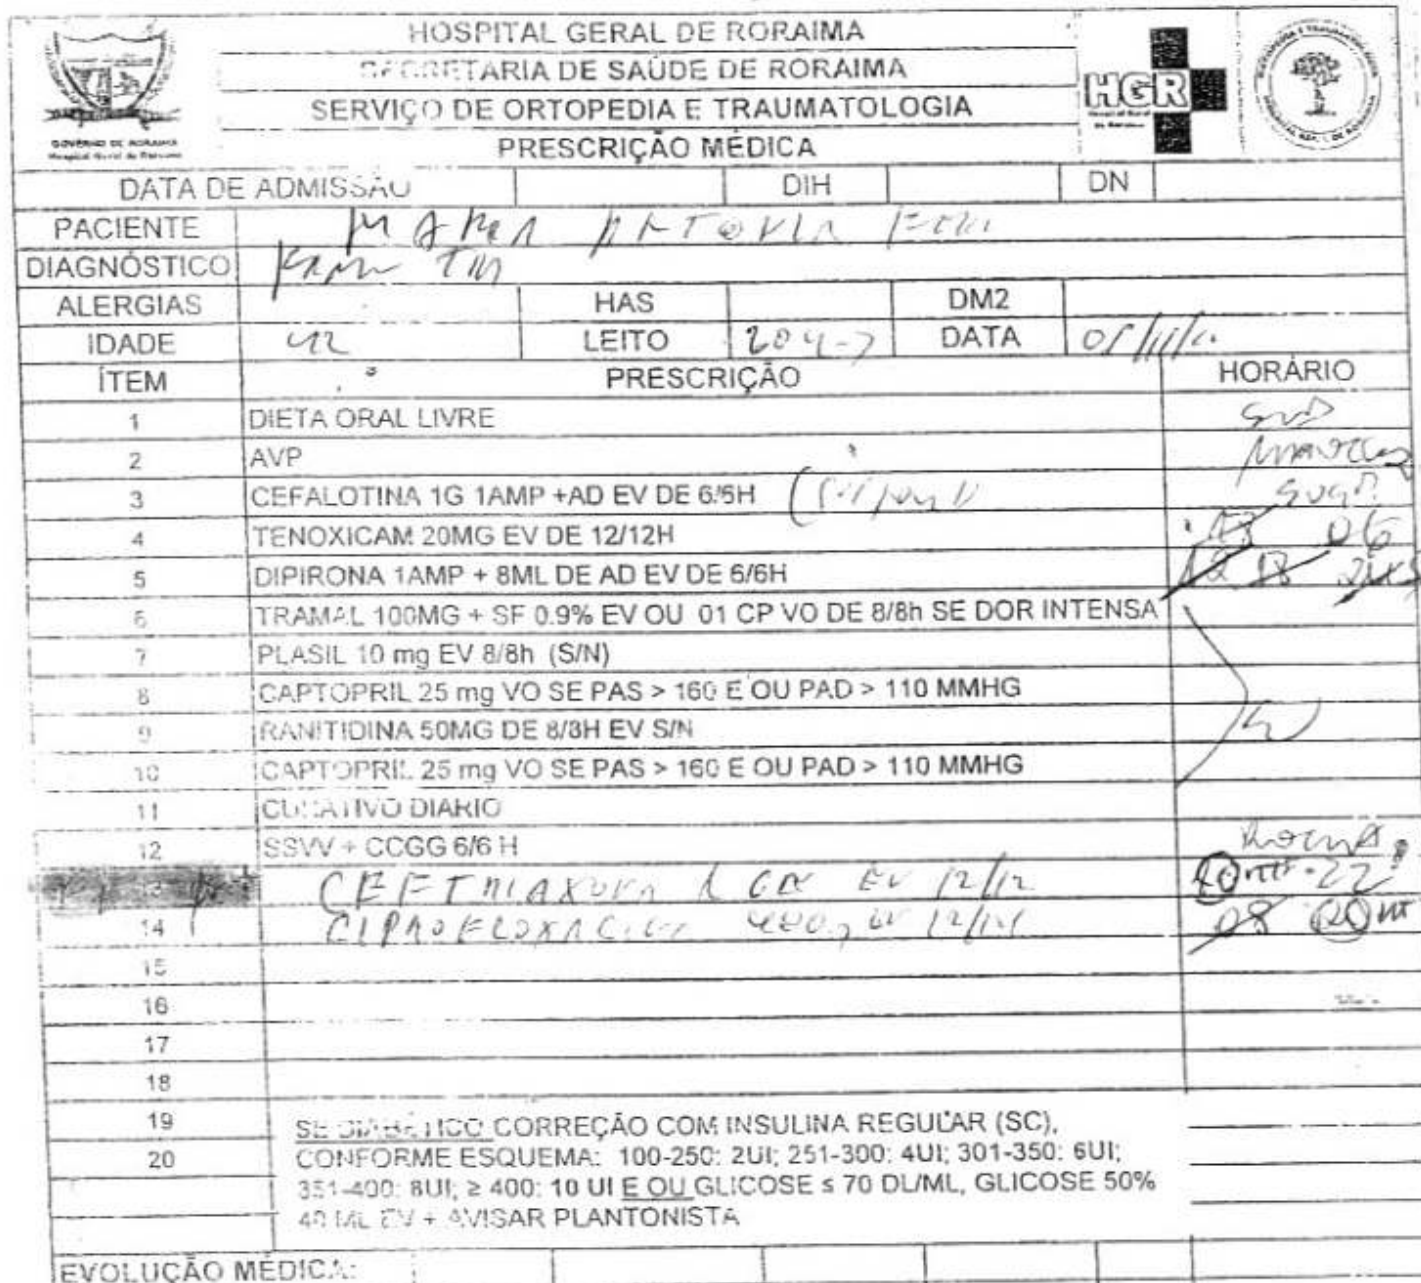 HOSPITAL GERAL DE RORAIMA
SECRETARIA DE SAÚDE DE RORAIMA
SERVIÇO DE ORTOPEDIA E TRAUMATOLOGIA
PRESCRIÇÃO MÉDICA
GOVERNO DE RORAIMA
Hospital Geral de Roraima
HGR
Hospital Geral de Roraima
DATA DE ADMISSÃO DIH DN
PACIENTE
DIAGNÓSTICO
ALERGIAS HAS DM2
IDADE 42 LEITO 204-7 DATA
ÍTEM PRESCRIÇÃO HORÁRIO
1 DIETA ORAL LIVRE SND
2 AVP
3 CEFALOTINA 1G 1AMP +AD EV DE 6/6H
4 TENOXICAM 20MG EV DE 12/12H 06
5 DIPIRONA 1AMP + 8ML DE AD EV DE 6/6H 12 18
6 TRAMAL 100MG + SF 0.9% EV OU 01 CP VO DE 8/8h SE DOR INTENSA
7 PLASIL 10 mg EV 8/8h (S/N)
8 CAPTOPRIL 25 mg VO SE PAS > 160 E OU PAD > 110 MMHG
9 RANITIDINA 50MG DE 8/8H EV S/N
10 CAPTOPRIL 25 mg VO SE PAS > 160 E OU PAD > 110 MMHG
11 CURATIVO DIÁRIO
12 SSVV + CCGG 6/6 H
13 CEFTRIAXONA 1 GR EV 12/12 22
14 CIPROFLOXACINO 400mg EV 12/12 08 20
15
16
17
18
19 SE DIABÉTICO CORREÇÃO COM INSULINA REGULAR (SC),
20 CONFORME ESQUEMA: 100-250: 2UI; 251-300: 4UI; 301-350: 6UI;
351-400: 8UI; ≥ 400: 10 UI E OU GLICOSE ≤ 70 DL/ML, GLICOSE 50%
40 ML EV + AVISAR PLANTONISTA
EVOLUÇÃO MÉDICA: